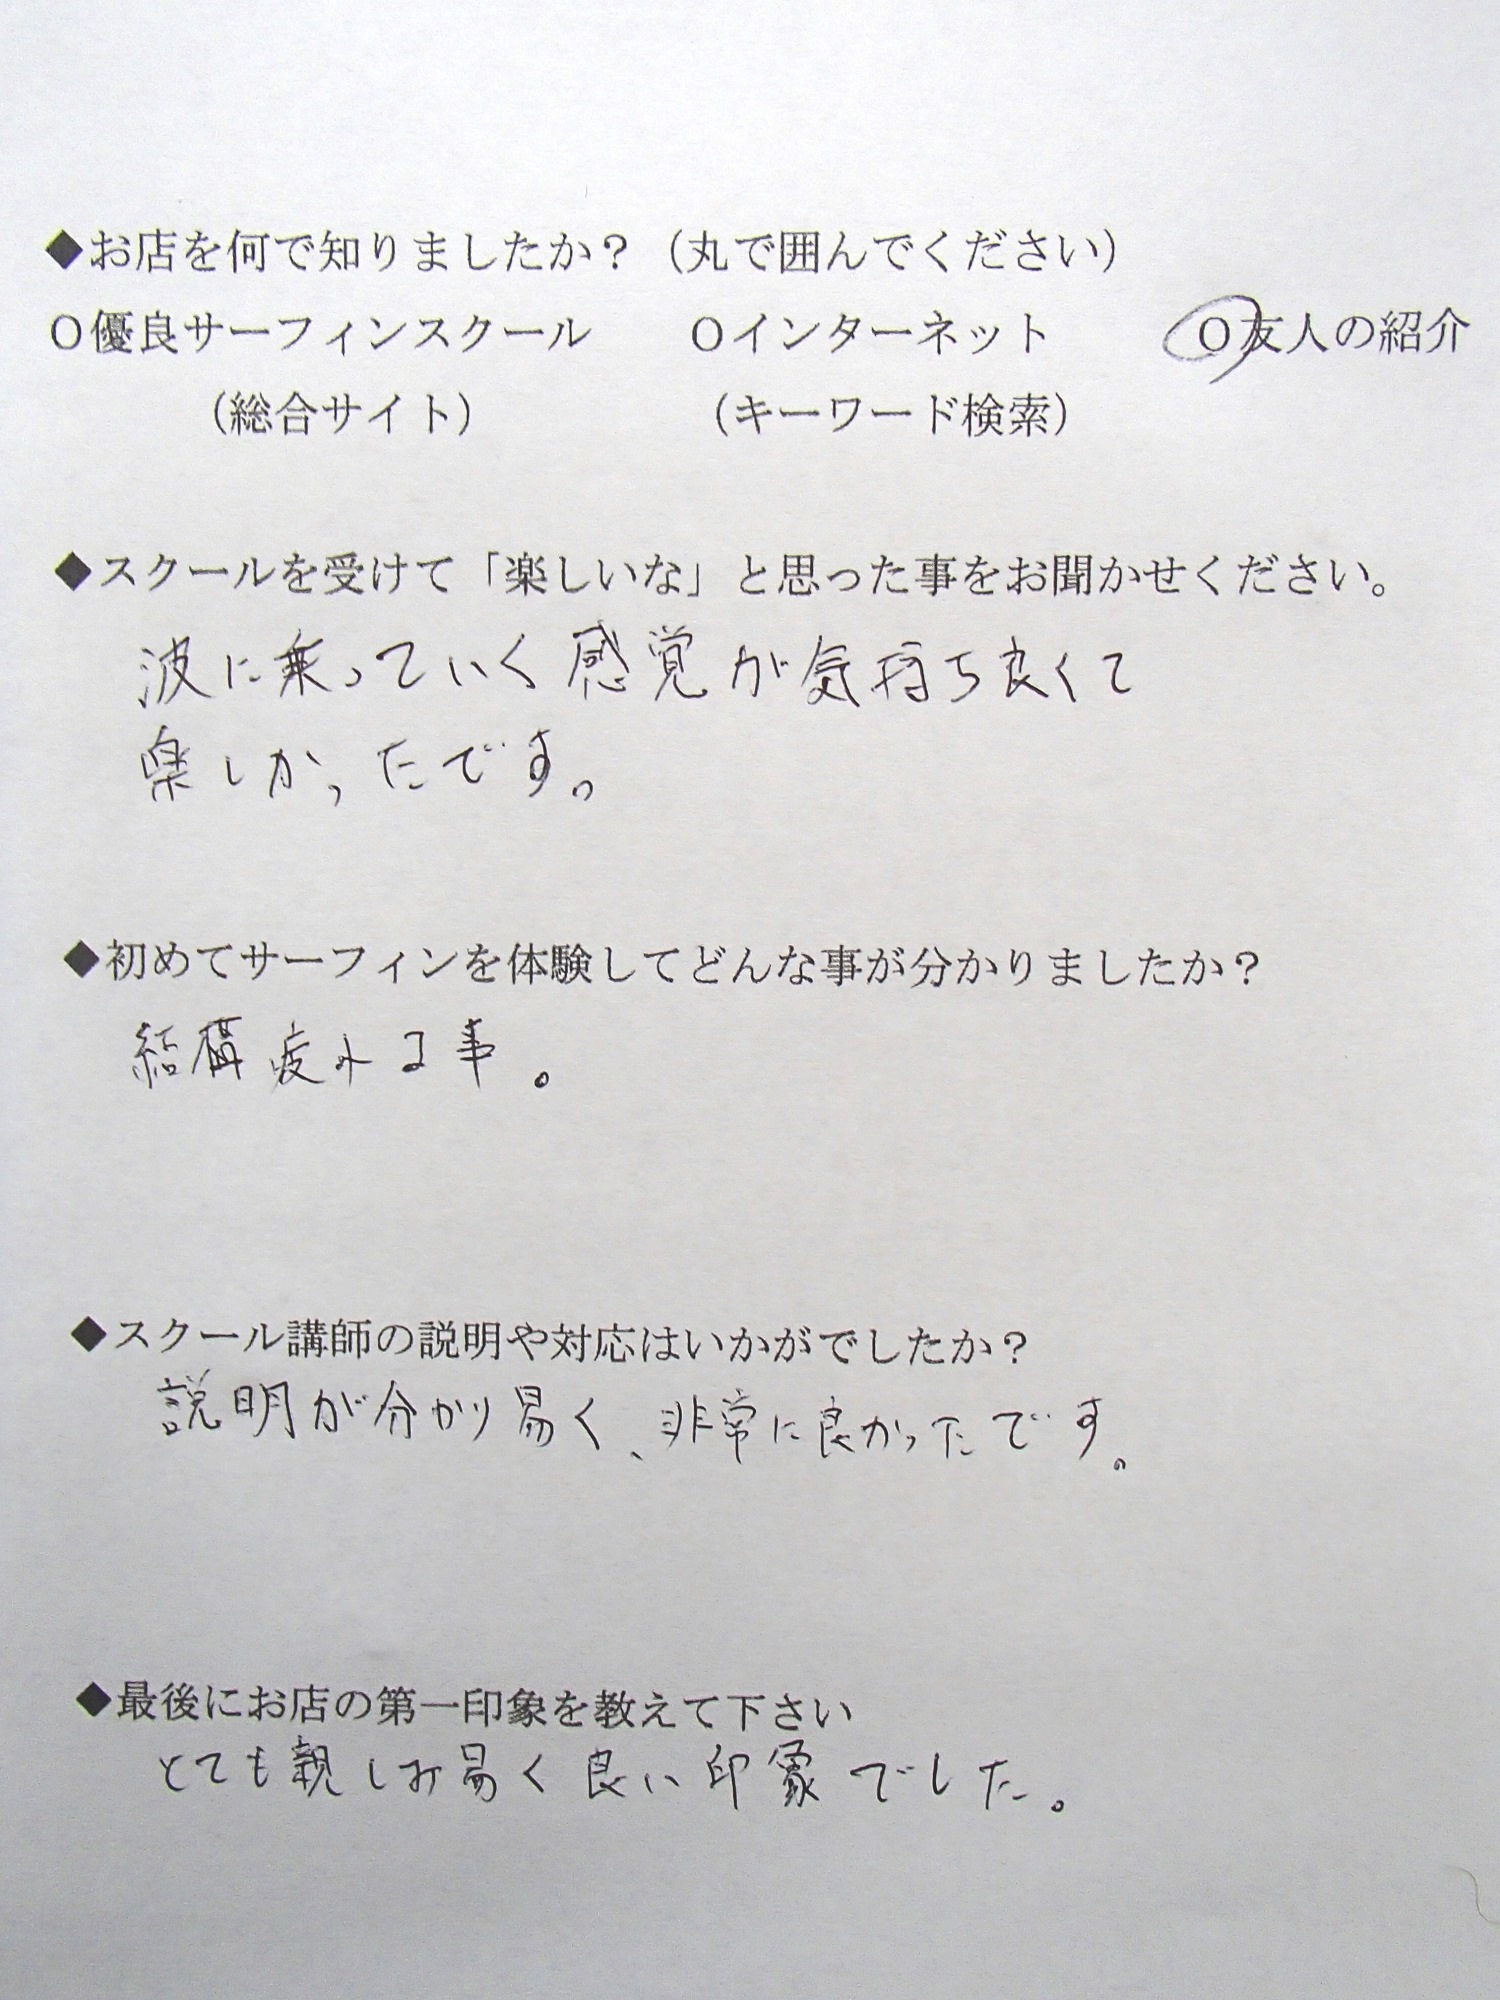 ◆お店を何で知りましたか？（丸で囲んでください）
○優良サーフィンスクール ○インターネット ○友人の紹介
（総合サイト） （キーワード検索）
◆スクールを受けて「楽しいな」と思った事をお聞かせください。
波に乗っていく感覚が気持ち良くて
楽しかったです。
◆初めてサーフィンを体験してどんな事が分かりましたか？
結構疲れる事。
◆スクール講師の説明や対応はいかがでしたか？
説明が分かり易く、非常に良かったです。
◆最後にお店の第一印象を教えて下さい
とても親しみ易く良い印象でした。